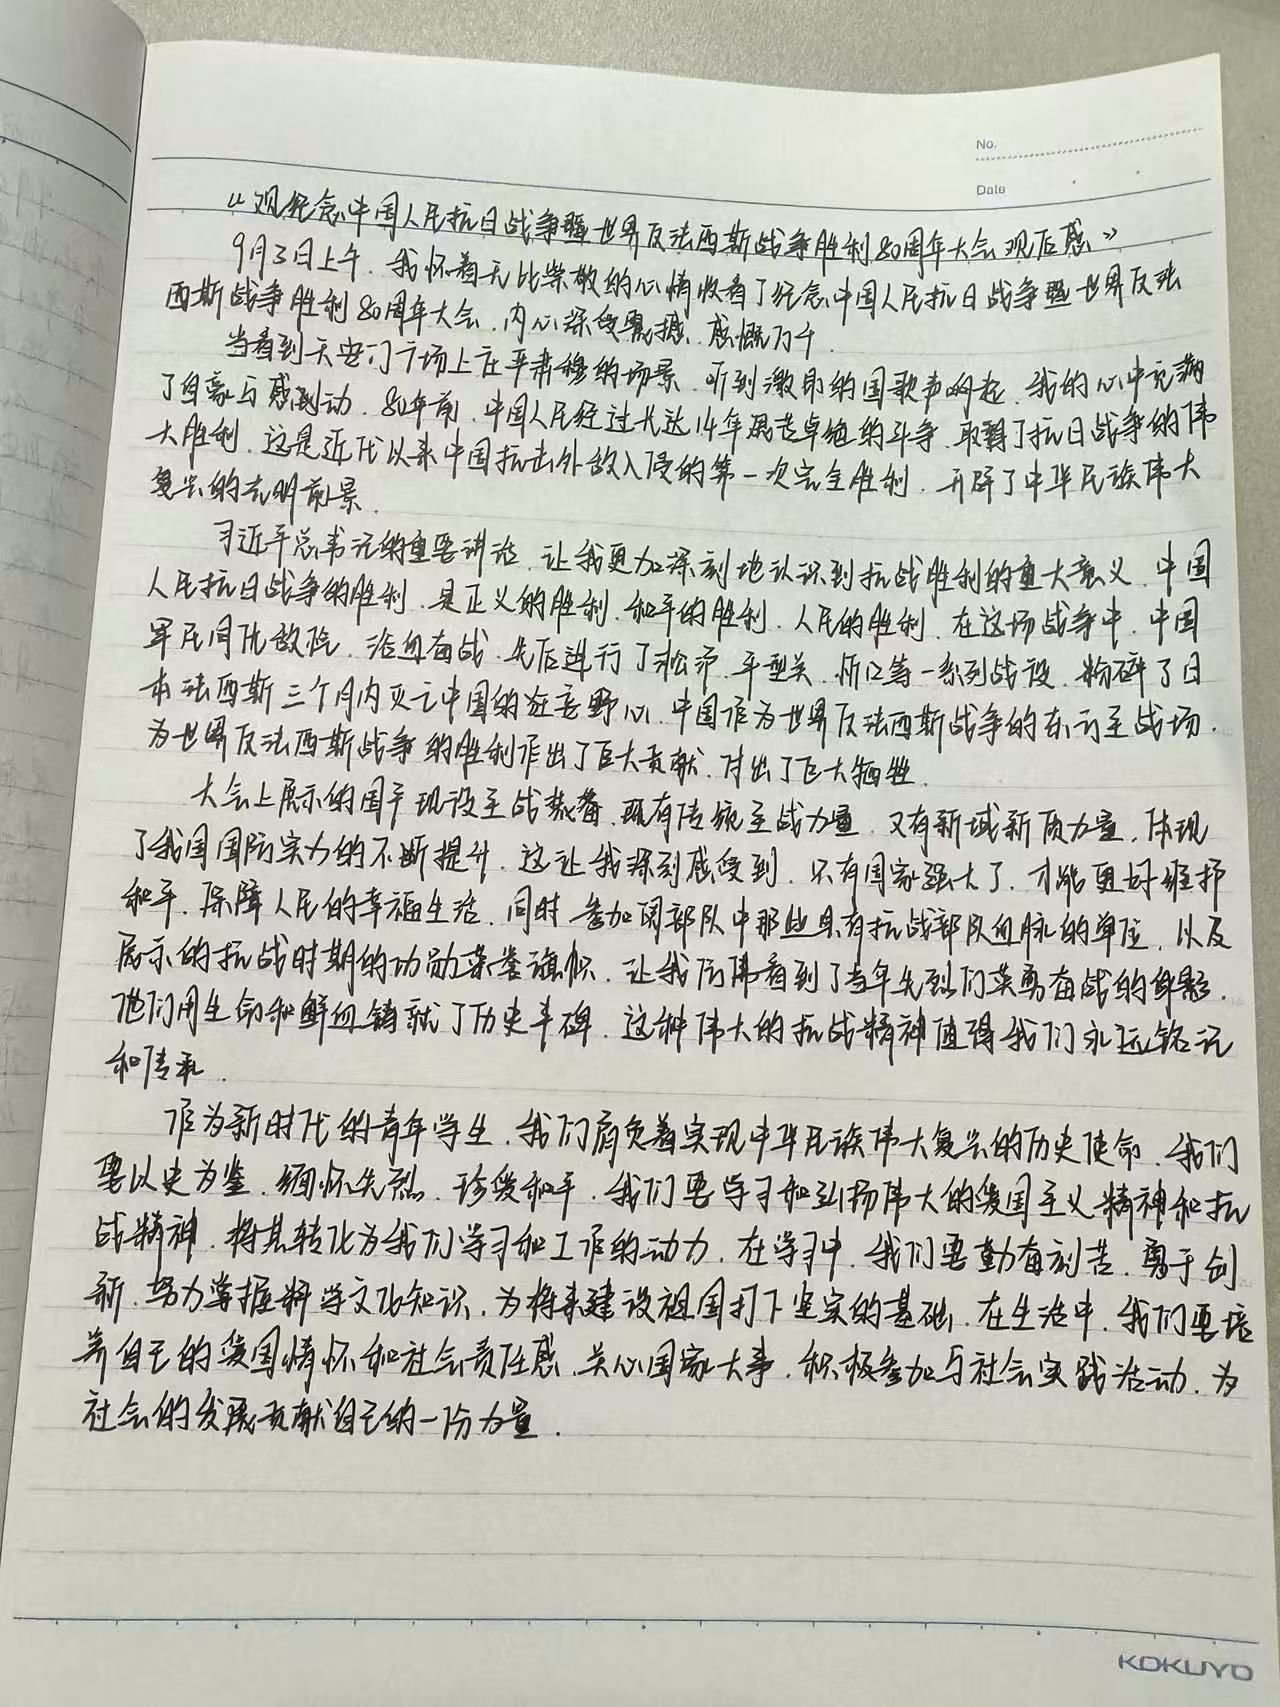 No.
Date
《观纪念中国人民抗日战争暨世界反法西斯战争胜利80周年大会观后感》
9月3日上午，我怀着无比崇敬的心情收看了纪念中国人民抗日战争暨世界反法
西斯战争胜利80周年大会，内心深受震撼，感慨万千．
当看到天安门广场上庄严肃穆的场景，听到激昂的国歌声响起，我的心中充满
了自豪与感动．80年前，中国人民经过长达14年艰苦卓绝的斗争，取得了抗日战争的伟
大胜利．这是近代以来中国抗击外敌入侵的第一次完全胜利，开辟了中华民族伟大
复兴的光明前景．
习近平总书记的重要讲话，让我更加深刻地认识到抗战胜利的重大意义．中国
人民抗日战争的胜利，是正义的胜利，和平的胜利，人民的胜利．在这场战争中，中国
军民同仇敌忾，浴血奋战，先后进行了淞沪，平型关，忻口等一系列战役，粉碎了日
本法西斯三个月内灭亡中国的狂妄野心．中国作为世界反法西斯战争的东方主战场，
为世界反法西斯战争的胜利作出了巨大贡献，付出了巨大牺牲．
大会上展示的国产现役主战装备，既有传统主战力量，又有新域新质力量，体现
了我国国防实力的不断提升．这让我深刻感受到，只有国家强大了，才能更好维护
和平，保障人民的幸福生活．同时，参加阅部队中那些具有抗战部队血脉的单位，以及
展示的抗战时期的功勋荣誉旗帜，让我仿佛看到了当年先烈们英勇奋战的身影．
他们用生命和鲜血铸就了历史丰碑，这种伟大的抗战精神值得我们永远铭记
和传承．
作为新时代的青年学生，我们肩负着实现中华民族伟大复兴的历史使命．我们
要以史为鉴，缅怀先烈，珍爱和平．我们要学习和弘扬伟大的爱国主义精神和抗
战精神，将其转化为我们学习和工作的动力．在学习中，我们要勤奋刻苦，勇于创
新，努力掌握科学文化知识，为将来建设祖国打下坚实的基础．在生活中，我们要培
养自己的爱国情怀和社会责任感，关心国家大事，积极参加与社会实践活动，为
社会的发展贡献自己的一份力量．
KOKUYO